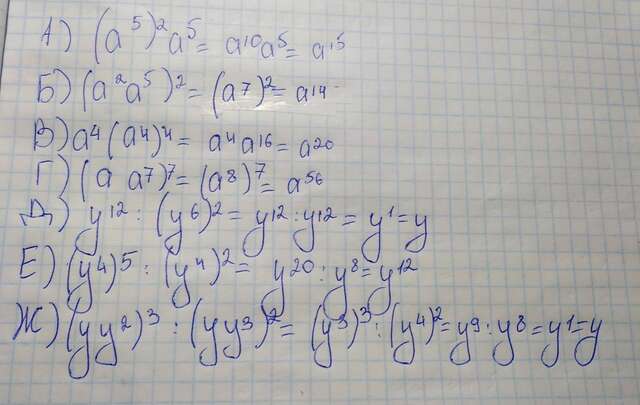 А) (a⁵)²a⁵ = a¹⁰a⁵ = a¹⁵
Б) (a²a⁵)² = (a⁷)² = a¹⁴
В) a⁴(a⁴)⁴ = a⁴a¹⁶ = a²⁰
Г) (a a⁷)⁷ = (a⁸)⁷ = a⁵⁶
Д) y¹² : (y⁶)² = y¹² : y¹² = y¹ = y
Е) (y⁴)⁵ : (y⁴)² = y²⁰ : y⁸ = y¹²
Ж) (yy²)³ : (yy³)² = (y³)³ : (y⁴)² = y⁹ : y⁸ = y¹ = y